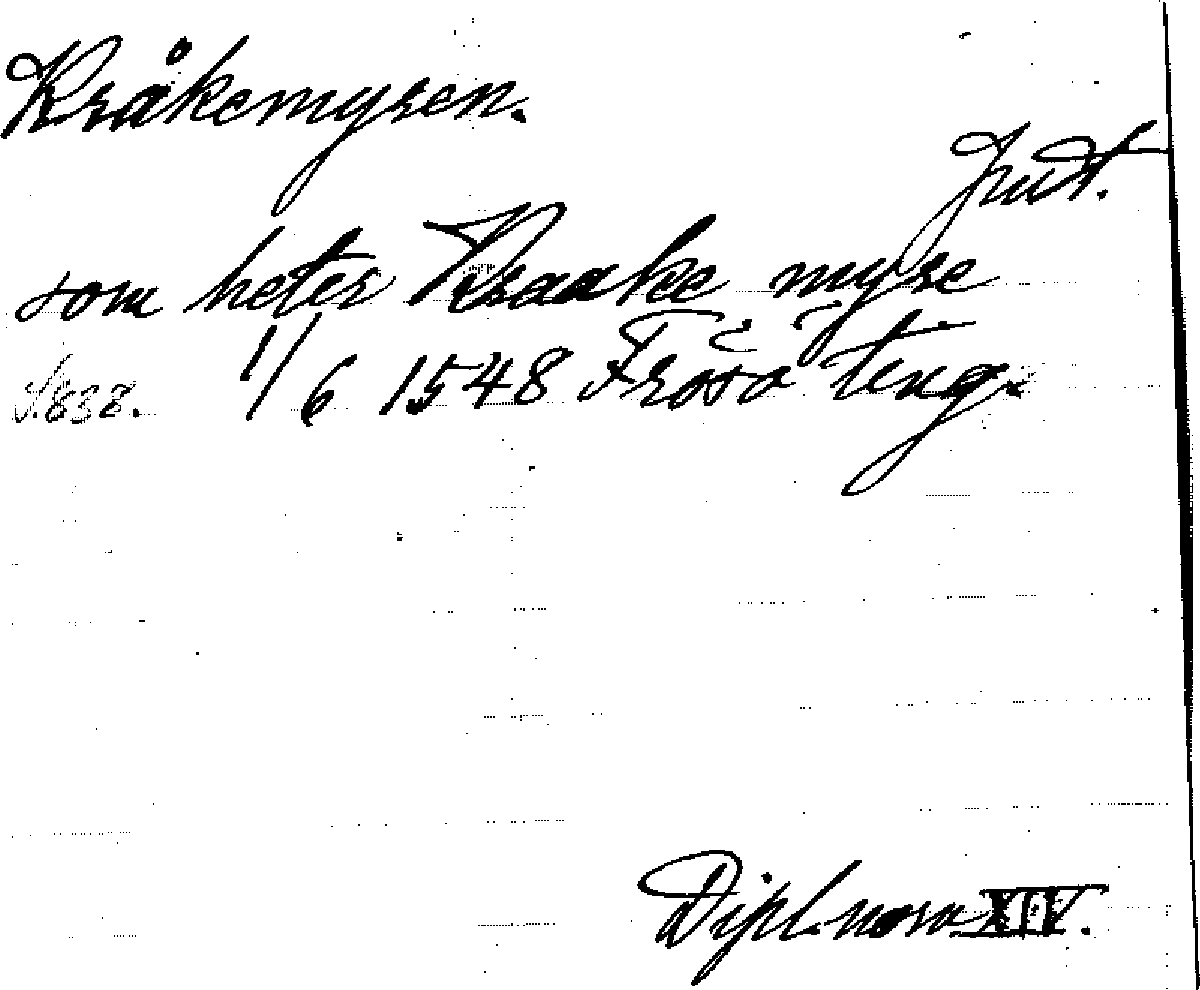 Kråkemyren.
Jmt.
som heter Kraake myre
S. 838. 1/6 1548 Frösö ting.
Dipl. norv XIV.